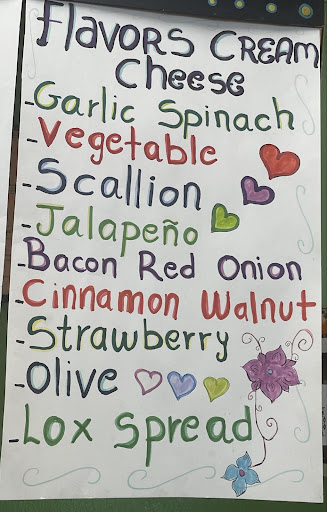 Flavors Cream
Cheese
-Garlic Spinach
-Vegetable
-Scallion
-Jalapeño
-Bacon Red Onion
-Cinnamon Walnut
-Strawberry
-Olive
-Lox Spread